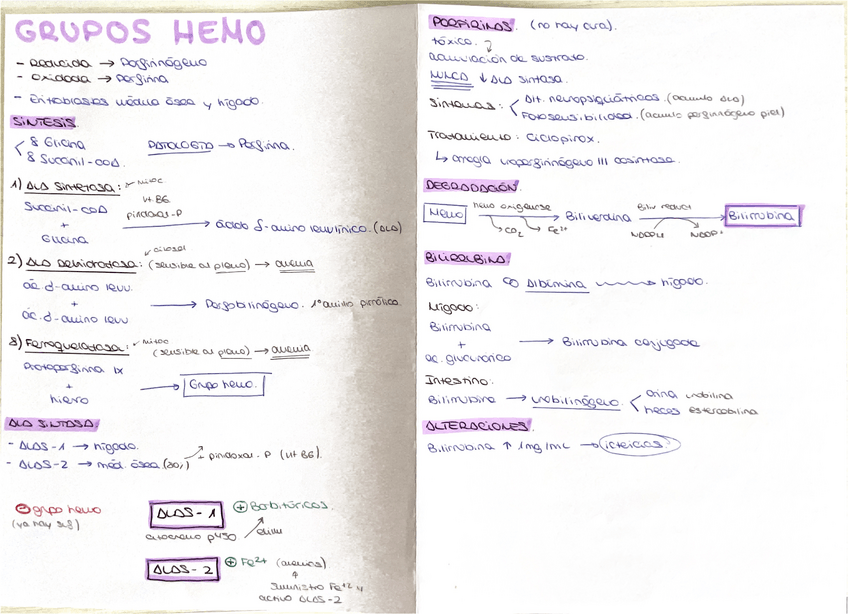 GRUPOS HEMO
- Reducida → Porfirinógeno
- Oxidada → Porfirina
- Eritoblastos médula ósea y hígado.
SÍNTESIS
8 Glicina
8 Succinil-coA
PATOLOGÍA → Porfirina.
1) ALA Sintetasa: mitoc
Succinil-coA
+
Glicina
Vit B6
piridoxal-P
→ ácido δ-amino levulínico. (ALA)
2) ALA Dehidratasa: citosol
(sensible al plomo) → anemia
ác. δ-amino levu
+
ác. δ-amino levu
→ Porfobilinógeno. 1º anillo pirrólico.
8) Ferroquelatasa: mitoc
(sensible al plomo) → anemia
Protoporfirina IX
+
hierro
→ Grupo hemo.
ALA SINTASA
- ALAS-1 → hígado.
- ALAS-2 → méd. ósea
piridoxal-P (vit B6).
⊖ grupo hemo
(ya hay suf)
ALAS-1 ⊕ Barbitúricos.
citocromo p450
elim
ALAS-2 ⊕ Fe2+ (anemias)
Suministro Fe+2 y
activo ALAS-2
PORFIRIAS. (no hay cura).
tóxico.
acumulación de sustrato.
NUNCA ↓ ALA sintasa.
Síntomas: Alt. neuropsiquiátricas. (acumulo ALA)
Fotosensibilidad. (acumulo porfirinógeno piel)
Tratamiento: Ciclopirox.
↳ arregla uroporfirinógeno III cosintasa.
DEGRADACIÓN.
Hemo hemo oxigenasa → Biliverdina Biliv reduct → Bilirrubina
CO2 Fe3+ NADPH NADP+
BILIRRUBINA
Bilirrubina ∞ Albúmina → hígado.
Hígado:
Bilirrubina
+
ac. glucurónico
→ Bilirrubina conjugada
Intestino:
Bilirrubina → urobilinógeno
orina urobilina
heces estercobilina
ALTERACIONES.
Bilirrubina ↑ 1mg/mL → ictericias.